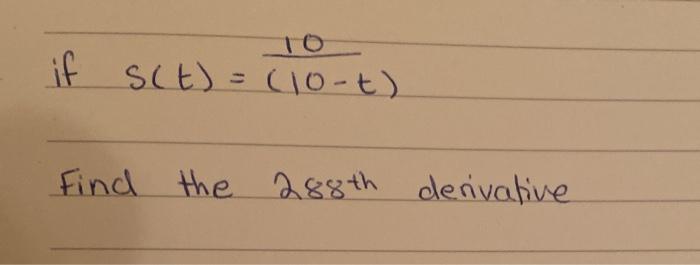 if s(t) = 10/(10-t)
Find the 288th derivative